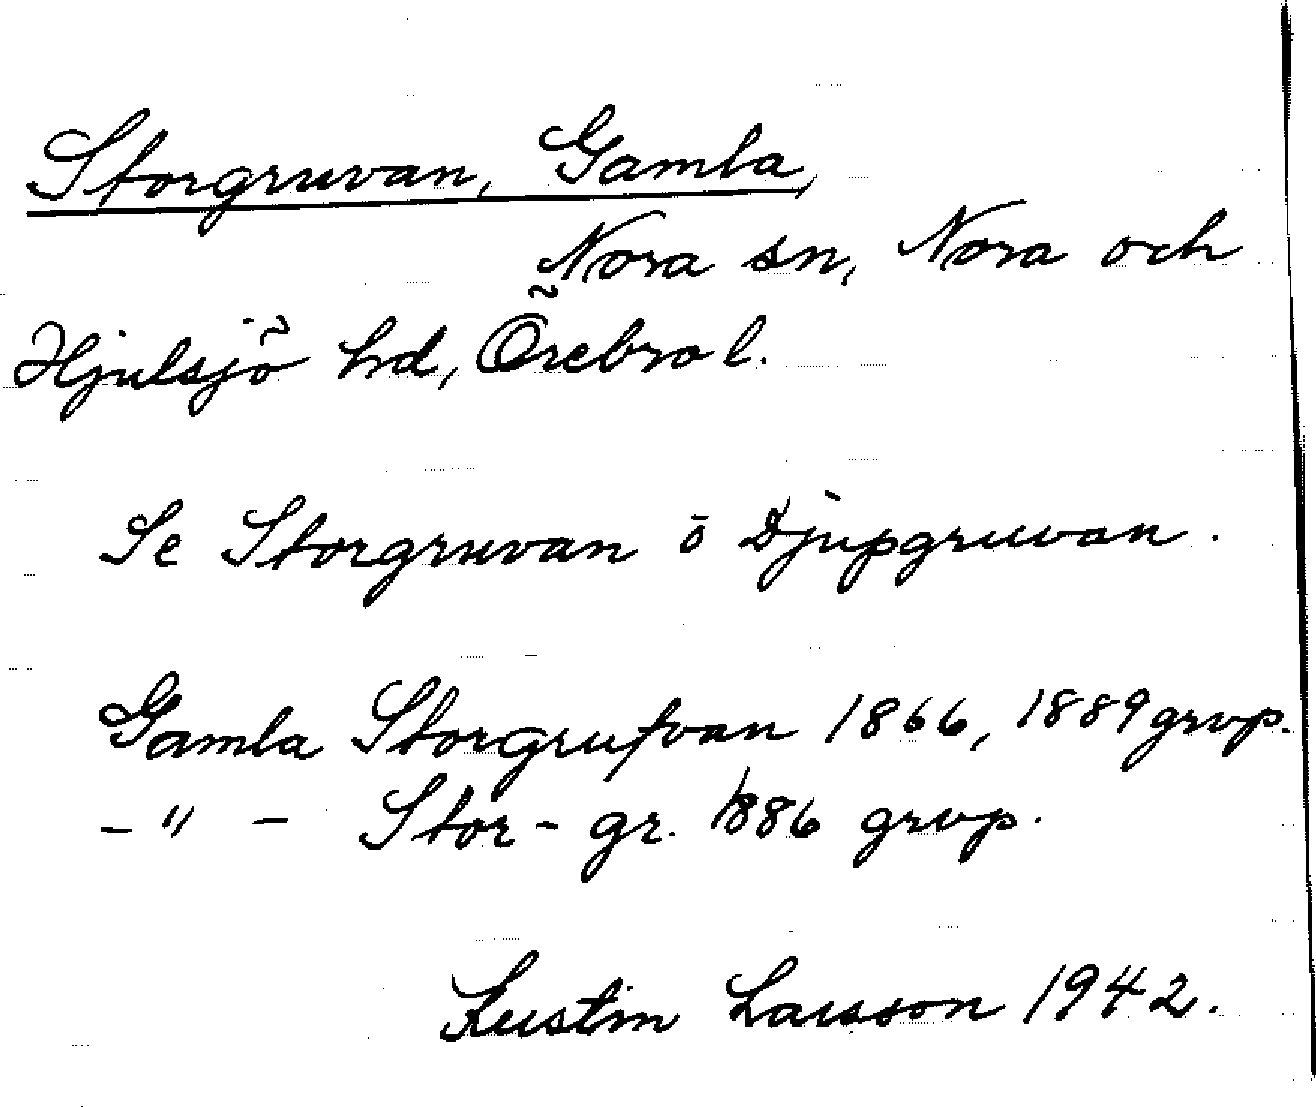 Storgruvan, Gamla,
Nora sn, Nora och
Hjulsjö hd, Örebro l.
Se Storgruvan o Djupgruvan.
Gamla Storgrufvan 1866, 1889 grvp.
- " - Stor-gr. 1886 grvp.
Kerstin Larsson 1942.